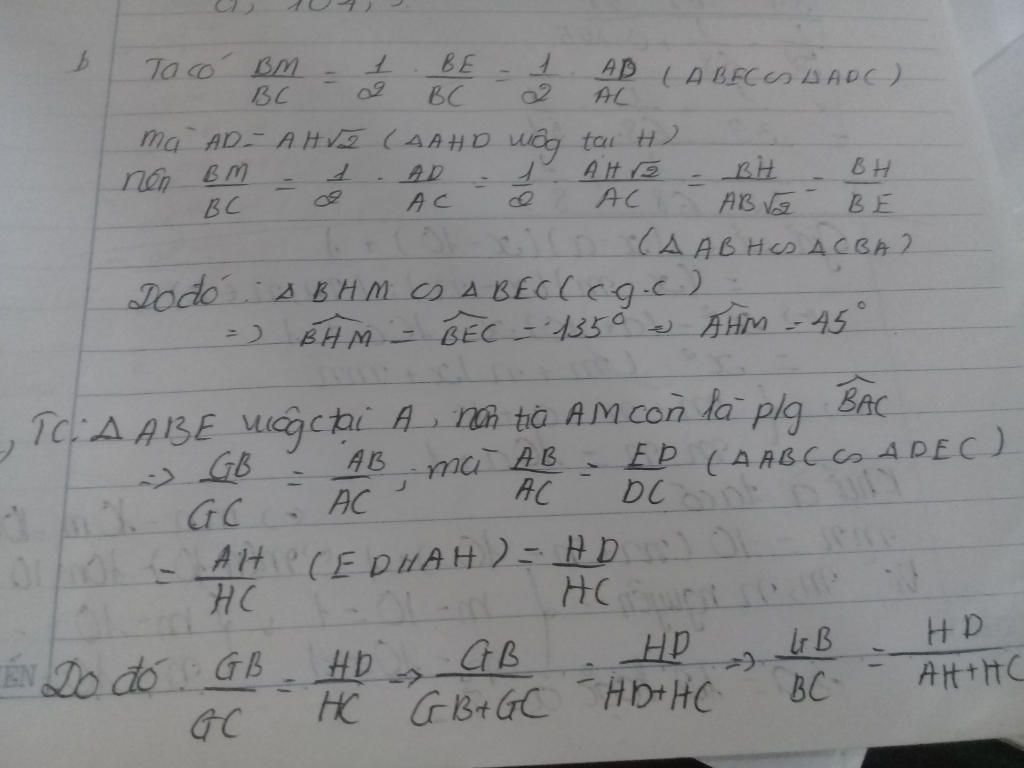 b Ta có BM/BC = 1/2 . BE/BC = 1/2 . AD/AC (ΔBEC ∽ ΔADC)
mà AD = AH√2 (ΔAHD vuông tại H)
nên BM/BC = 1/2 . AD/AC = 1/2 . AH√2/AC = BH/AB√2 = BH/BE
(ΔABH ∽ ΔCBA)
Do đó : Δ BHM ∽ ΔBEC (c.g.c)
=> BHM = BEC = 135° => AHM = 45°
, TC: Δ ABE vuông tại A, nên tia AM còn là p/g BAC
=> GB/GC = AB/AC ; mà AB/AC = ED/DC (ΔABC ∽ ΔDEC)
= AH/HC (ED // AH) = HD/HC
Do đó : GB/GC = HD/HC => GB/GB+GC = HD/HD+HC => GB/BC = HD/AH+HC